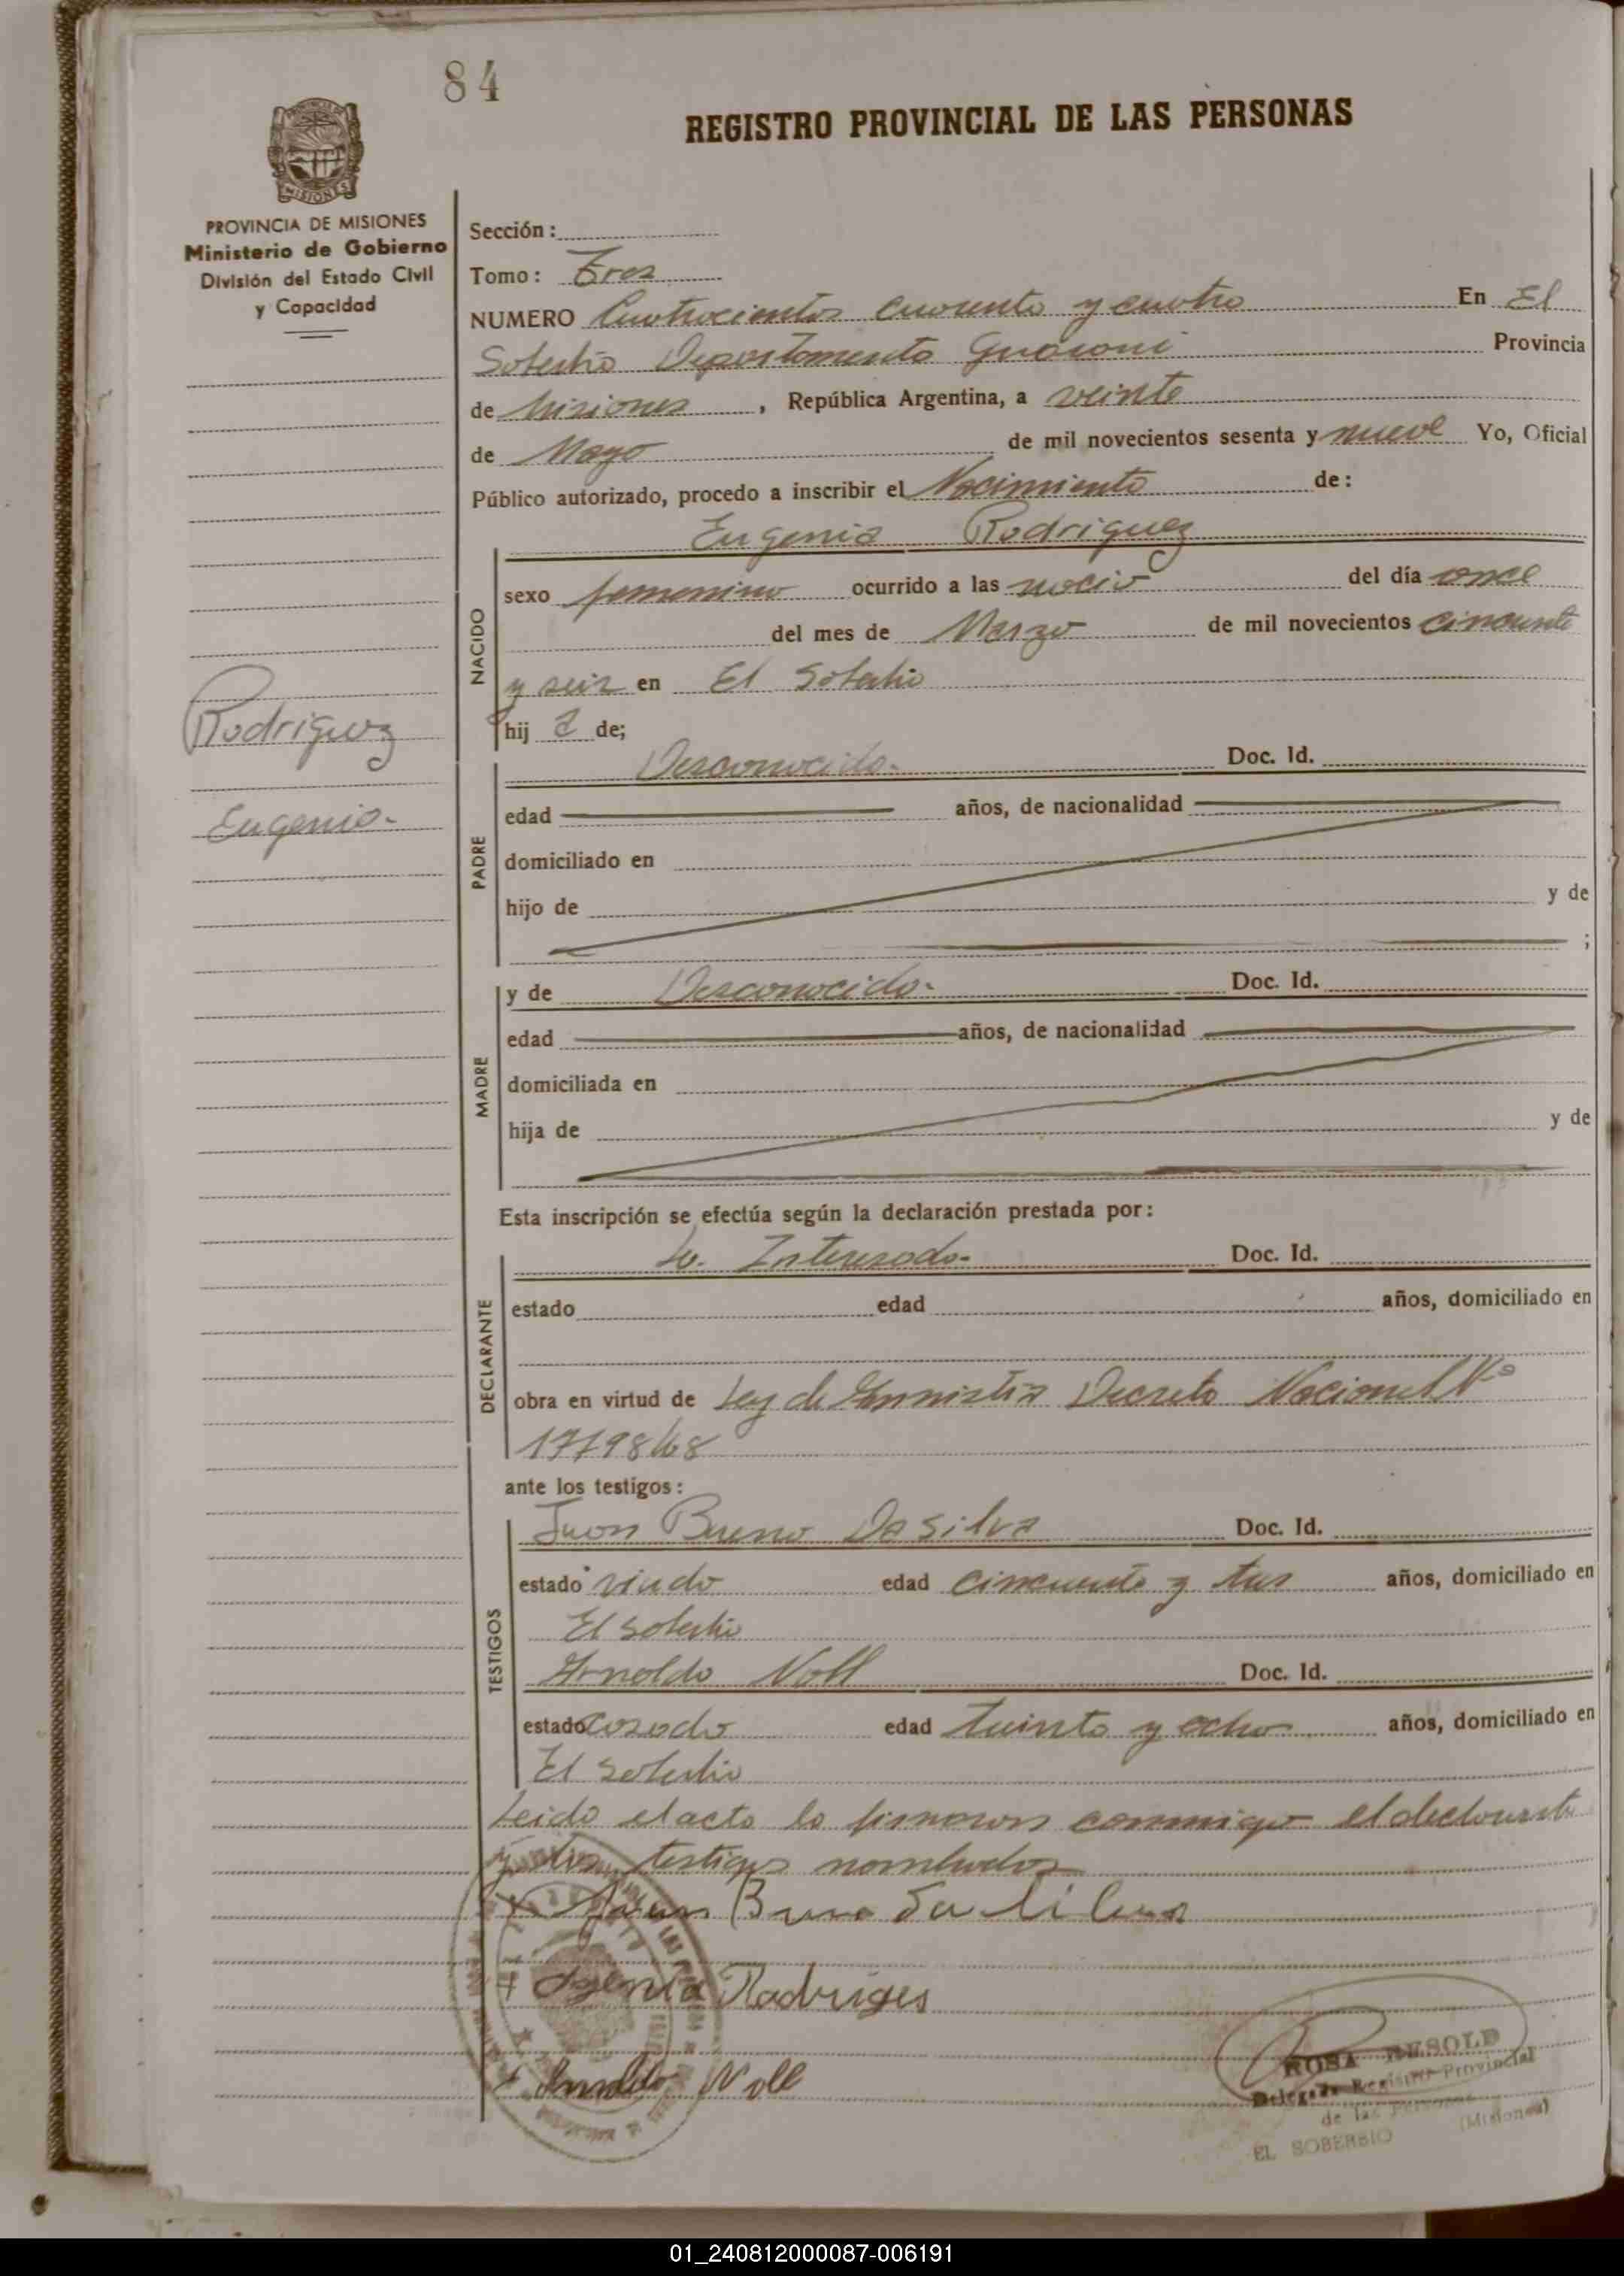 84
REGISTRO PROVINCIAL DE LAS PERSONAS
PROVINCIA DE MISIONES
Ministerio de Gobierno
División del Estado Civil
y Capacidad
Sección:
Tomo: Tres
NUMERO Cuatrocientos cuarenta y cuatro En El
Soberbio Departamento Guarani Provincia
de Misiones, República Argentina, a veinte
de Mayo de mil novecientos sesenta y nueve Yo, Oficial
Público autorizado, procedo a inscribir el Nacimiento de:
Eugenia Rodriguez
NACIDO
sexo femenino ocurrido a las del día once
del mes de Marzo de mil novecientos cincuenta
y seis en El Soberbio
hij a de;
Rodriguez
Eugenia.
PADRE
Desconocido. Doc. Id.
edad años, de nacionalidad
domiciliado en
hijo de y de
;
MADRE
y de Desconocido. Doc. Id.
edad años, de nacionalidad
domiciliada en
hija de y de
Esta inscripción se efectúa según la declaración prestada por:
DECLARANTE
La Interesada. Doc. Id.
estado edad años, domiciliado en
obra en virtud de Ley de Amnistia Decreto Nacional Nº
17798/68
ante los testigos:
TESTIGOS
Juan Bueno Da Silva Doc. Id.
estado viudo edad cincuenta y tres años, domiciliado en
El Soberbio
Arnoldo Noll Doc. Id.
estado casado edad treinta y ocho años, domiciliado en
El Soberbio
Leido el acta la firmaron conmigo el declarante
y los testigos nombrados
Juan Bueno Da Silva
Rodriges
Arnoldo Noll
ROSA BESOLD
Delegada Registro Provincial
de las Personas
EL SOBERBIO (Misiones)
01_240812000087-006191